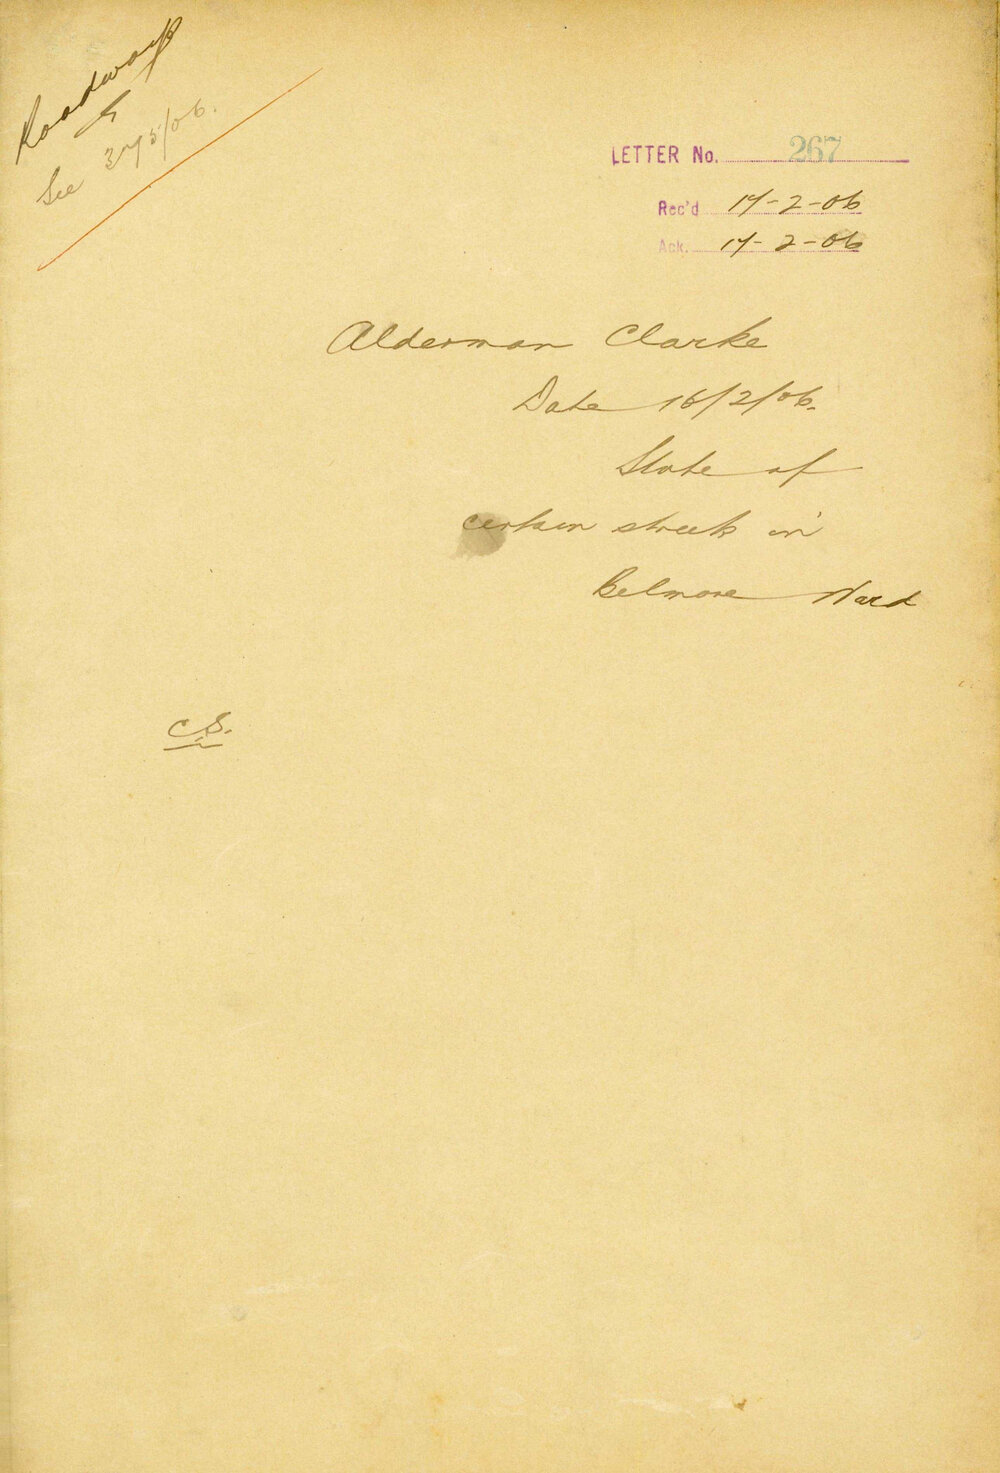 Roadways
See 375/06.
LETTER No. 267
Rec'd 17-2-06
Ack. 17-2-06
Alderman Clarke
Date 16/2/06.
State of
certain streets in
Belmore Ward
C.S.